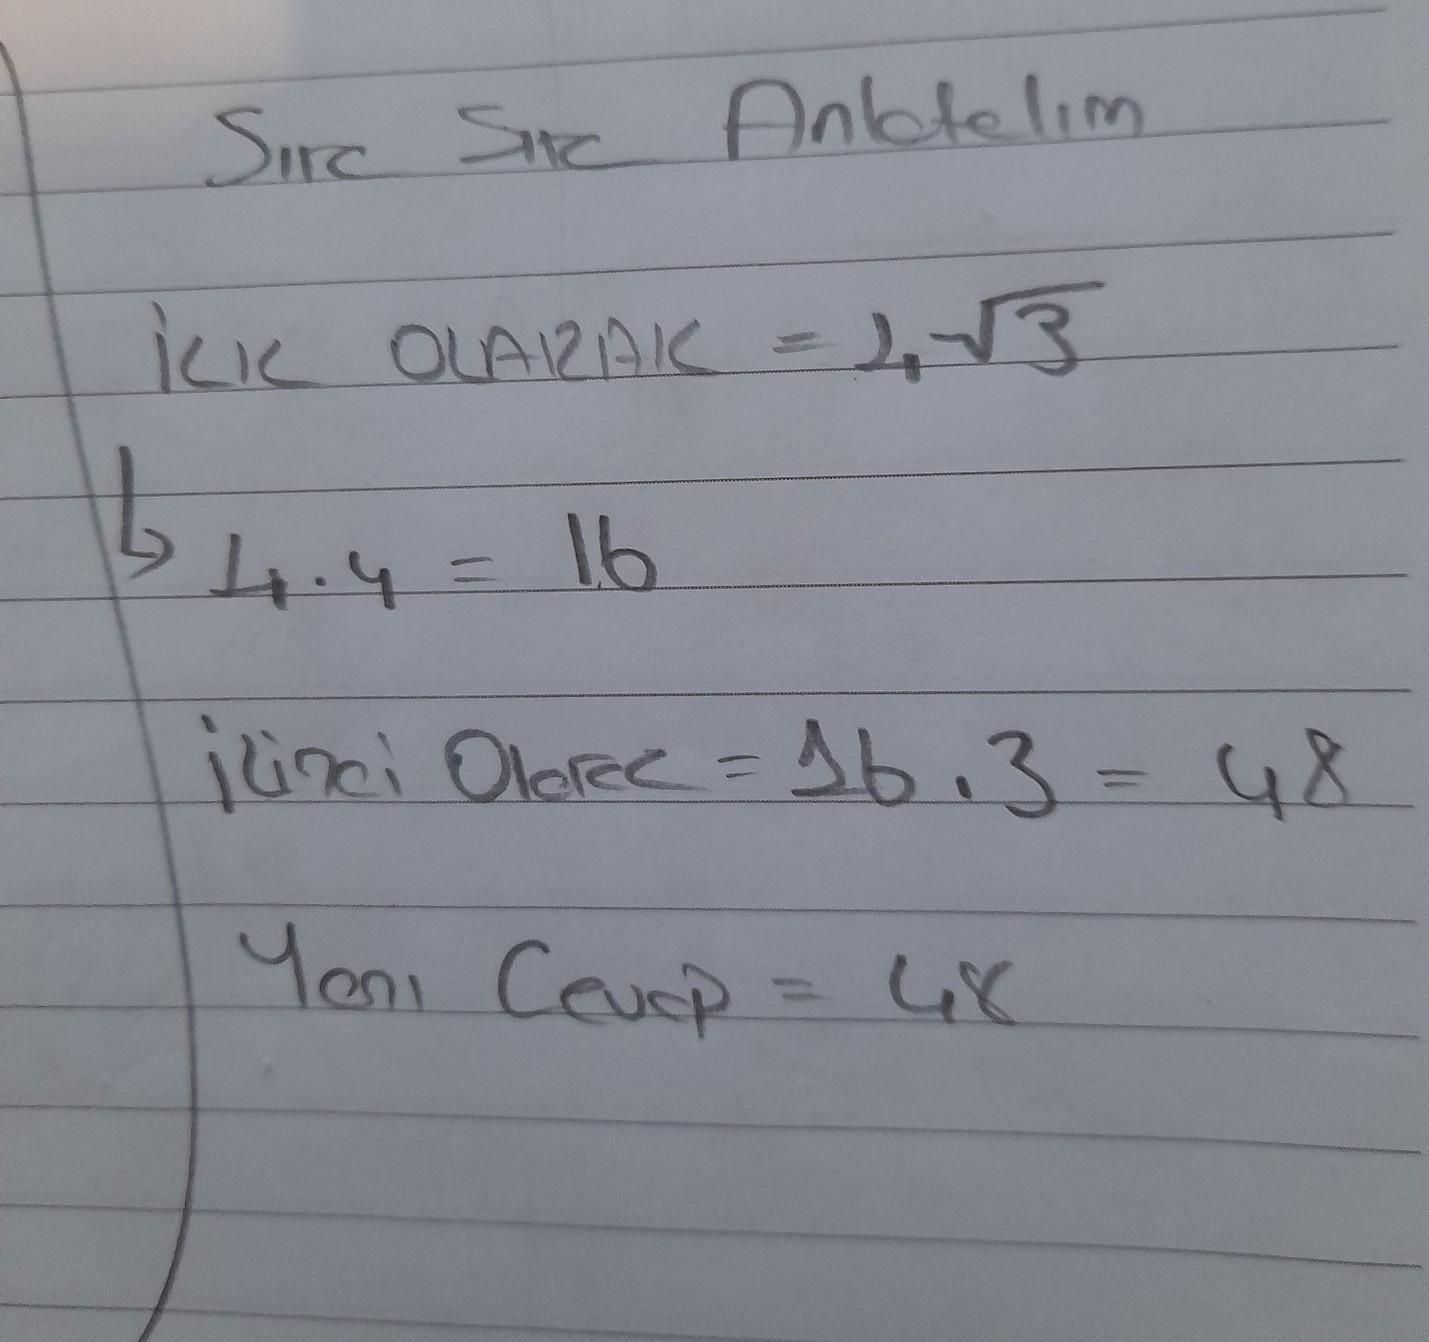 Sıra Sıra Anlatalım
İLK OLARAK = 4√3
↳ 4.4 = 16
İkinci Olarak = 16.3 = 48
Yani Cevap = 48